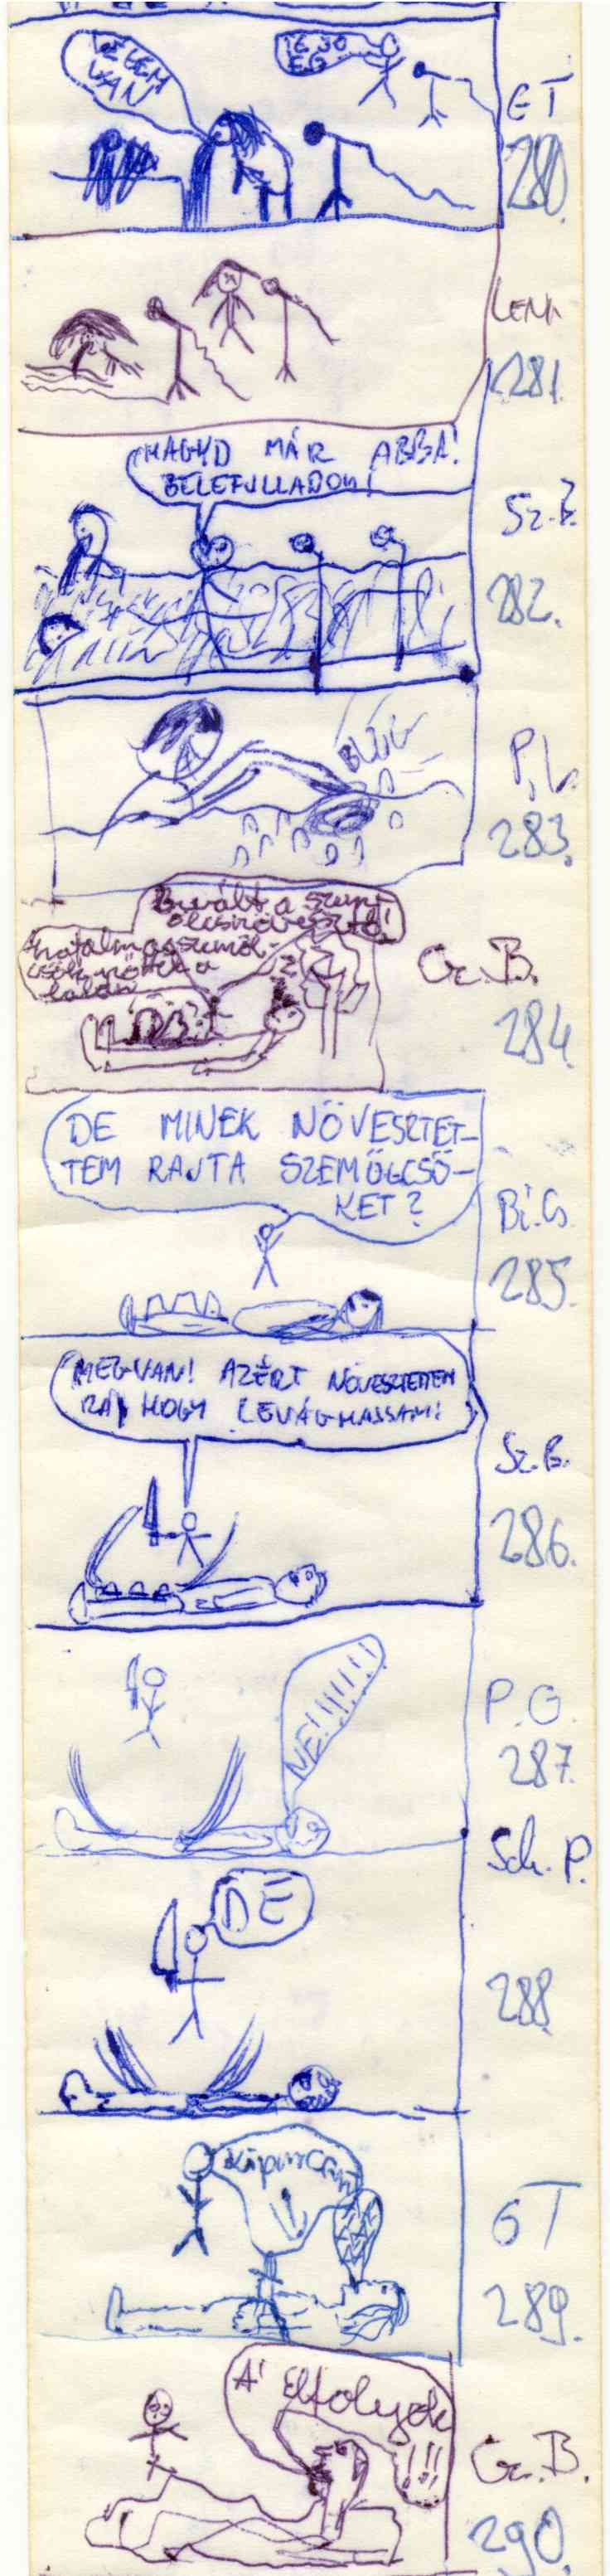 VELEM
VAN
TE JÓ
ÉG
GT
280.
LENA
281.
HAGYD MÁR ABBA!
BELEFULLADOK!
Sz.B.
282.
BLÚG
P.L.
283.
Bevált a szem
ölcsnövesztő!
hatalmas szemöl-
csök nőttek a
talán
Cz.B.
284.
DE MINEK NÖVESZTET-
TEM RAJTA SZEMÖLCSÖ-
KET?
Bi.G.
285.
MEGVAN! AZÉRT NÖVESZTETTEM
RÁ, HOGY LEVÁGHASSAM!
Sz.B.
286.
NE!!!!!!
P.G.
287.
Sch.P.
DE
288.
GT
289.
Á! Elfolyok
!!!
Cz.B.
290.